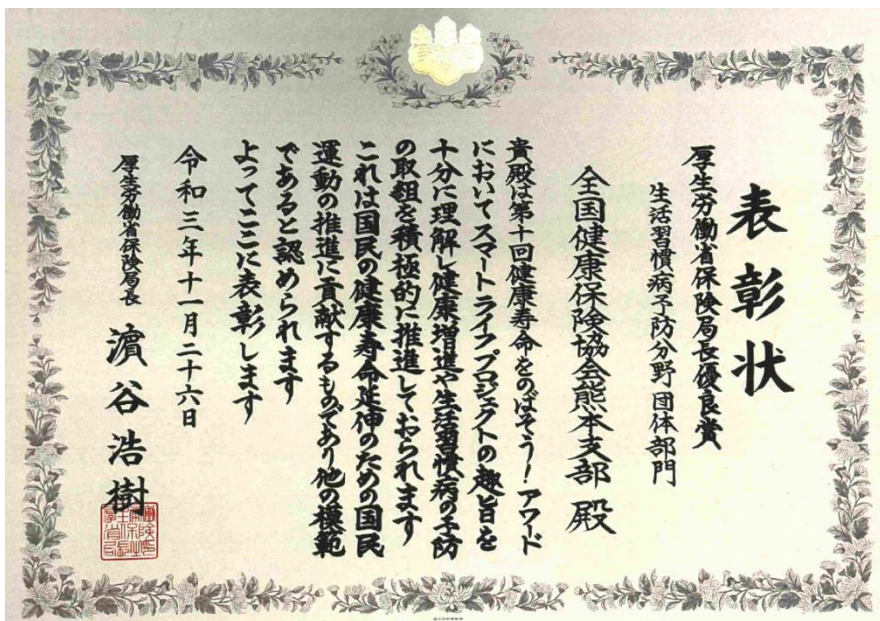 表彰状
厚生労働省保険局長優良賞
生活習慣病予防分野 団体部門
全国健康保険協会熊本支部 殿
貴殿は第十回健康寿命をのばそう！アワード
においてスマートライフプロジェクトの趣旨を
十分に理解し健康増進や生活習慣病の予防
の取組を積極的に推進しておられます
これは国民の健康寿命延伸のための国民
運動の推進に貢献するものであり他の模範
であると認められます
よってここに表彰します
令和三年十一月二十六日
厚生労働省保険局長 濵谷浩樹